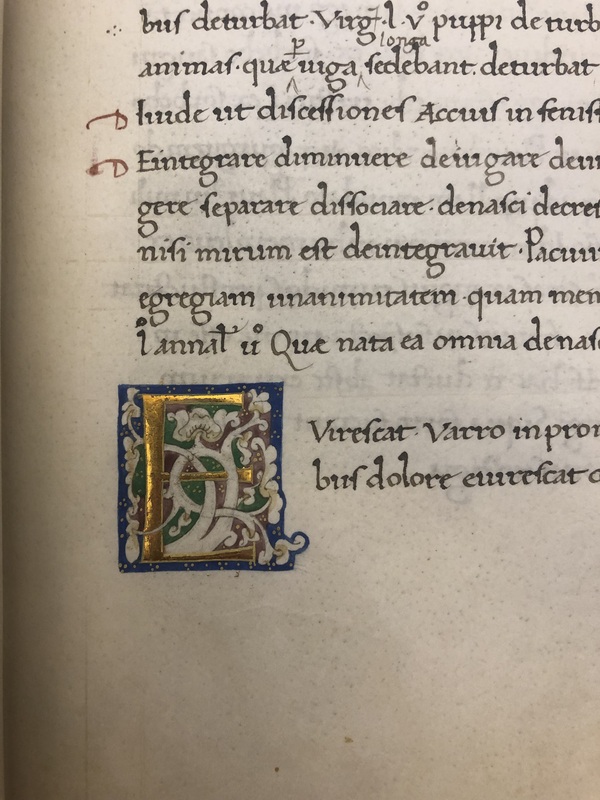 bus deturbat · Virg · l · vº puppi deturb
animas · quæ p iuga longa sedebant. deturbat
Iuide ut discessiones Accius in fenis
Eintegrare diminuere deiugare deiu
gere separare dissociare · denasci decres
nisi mirum est deintegrauit · Pacuu
egregiam unanimitatem · quam mem
l annal uº Quæ nata ea omnia denas
E Virescat · Varro in prom
bus dolore euirescat c